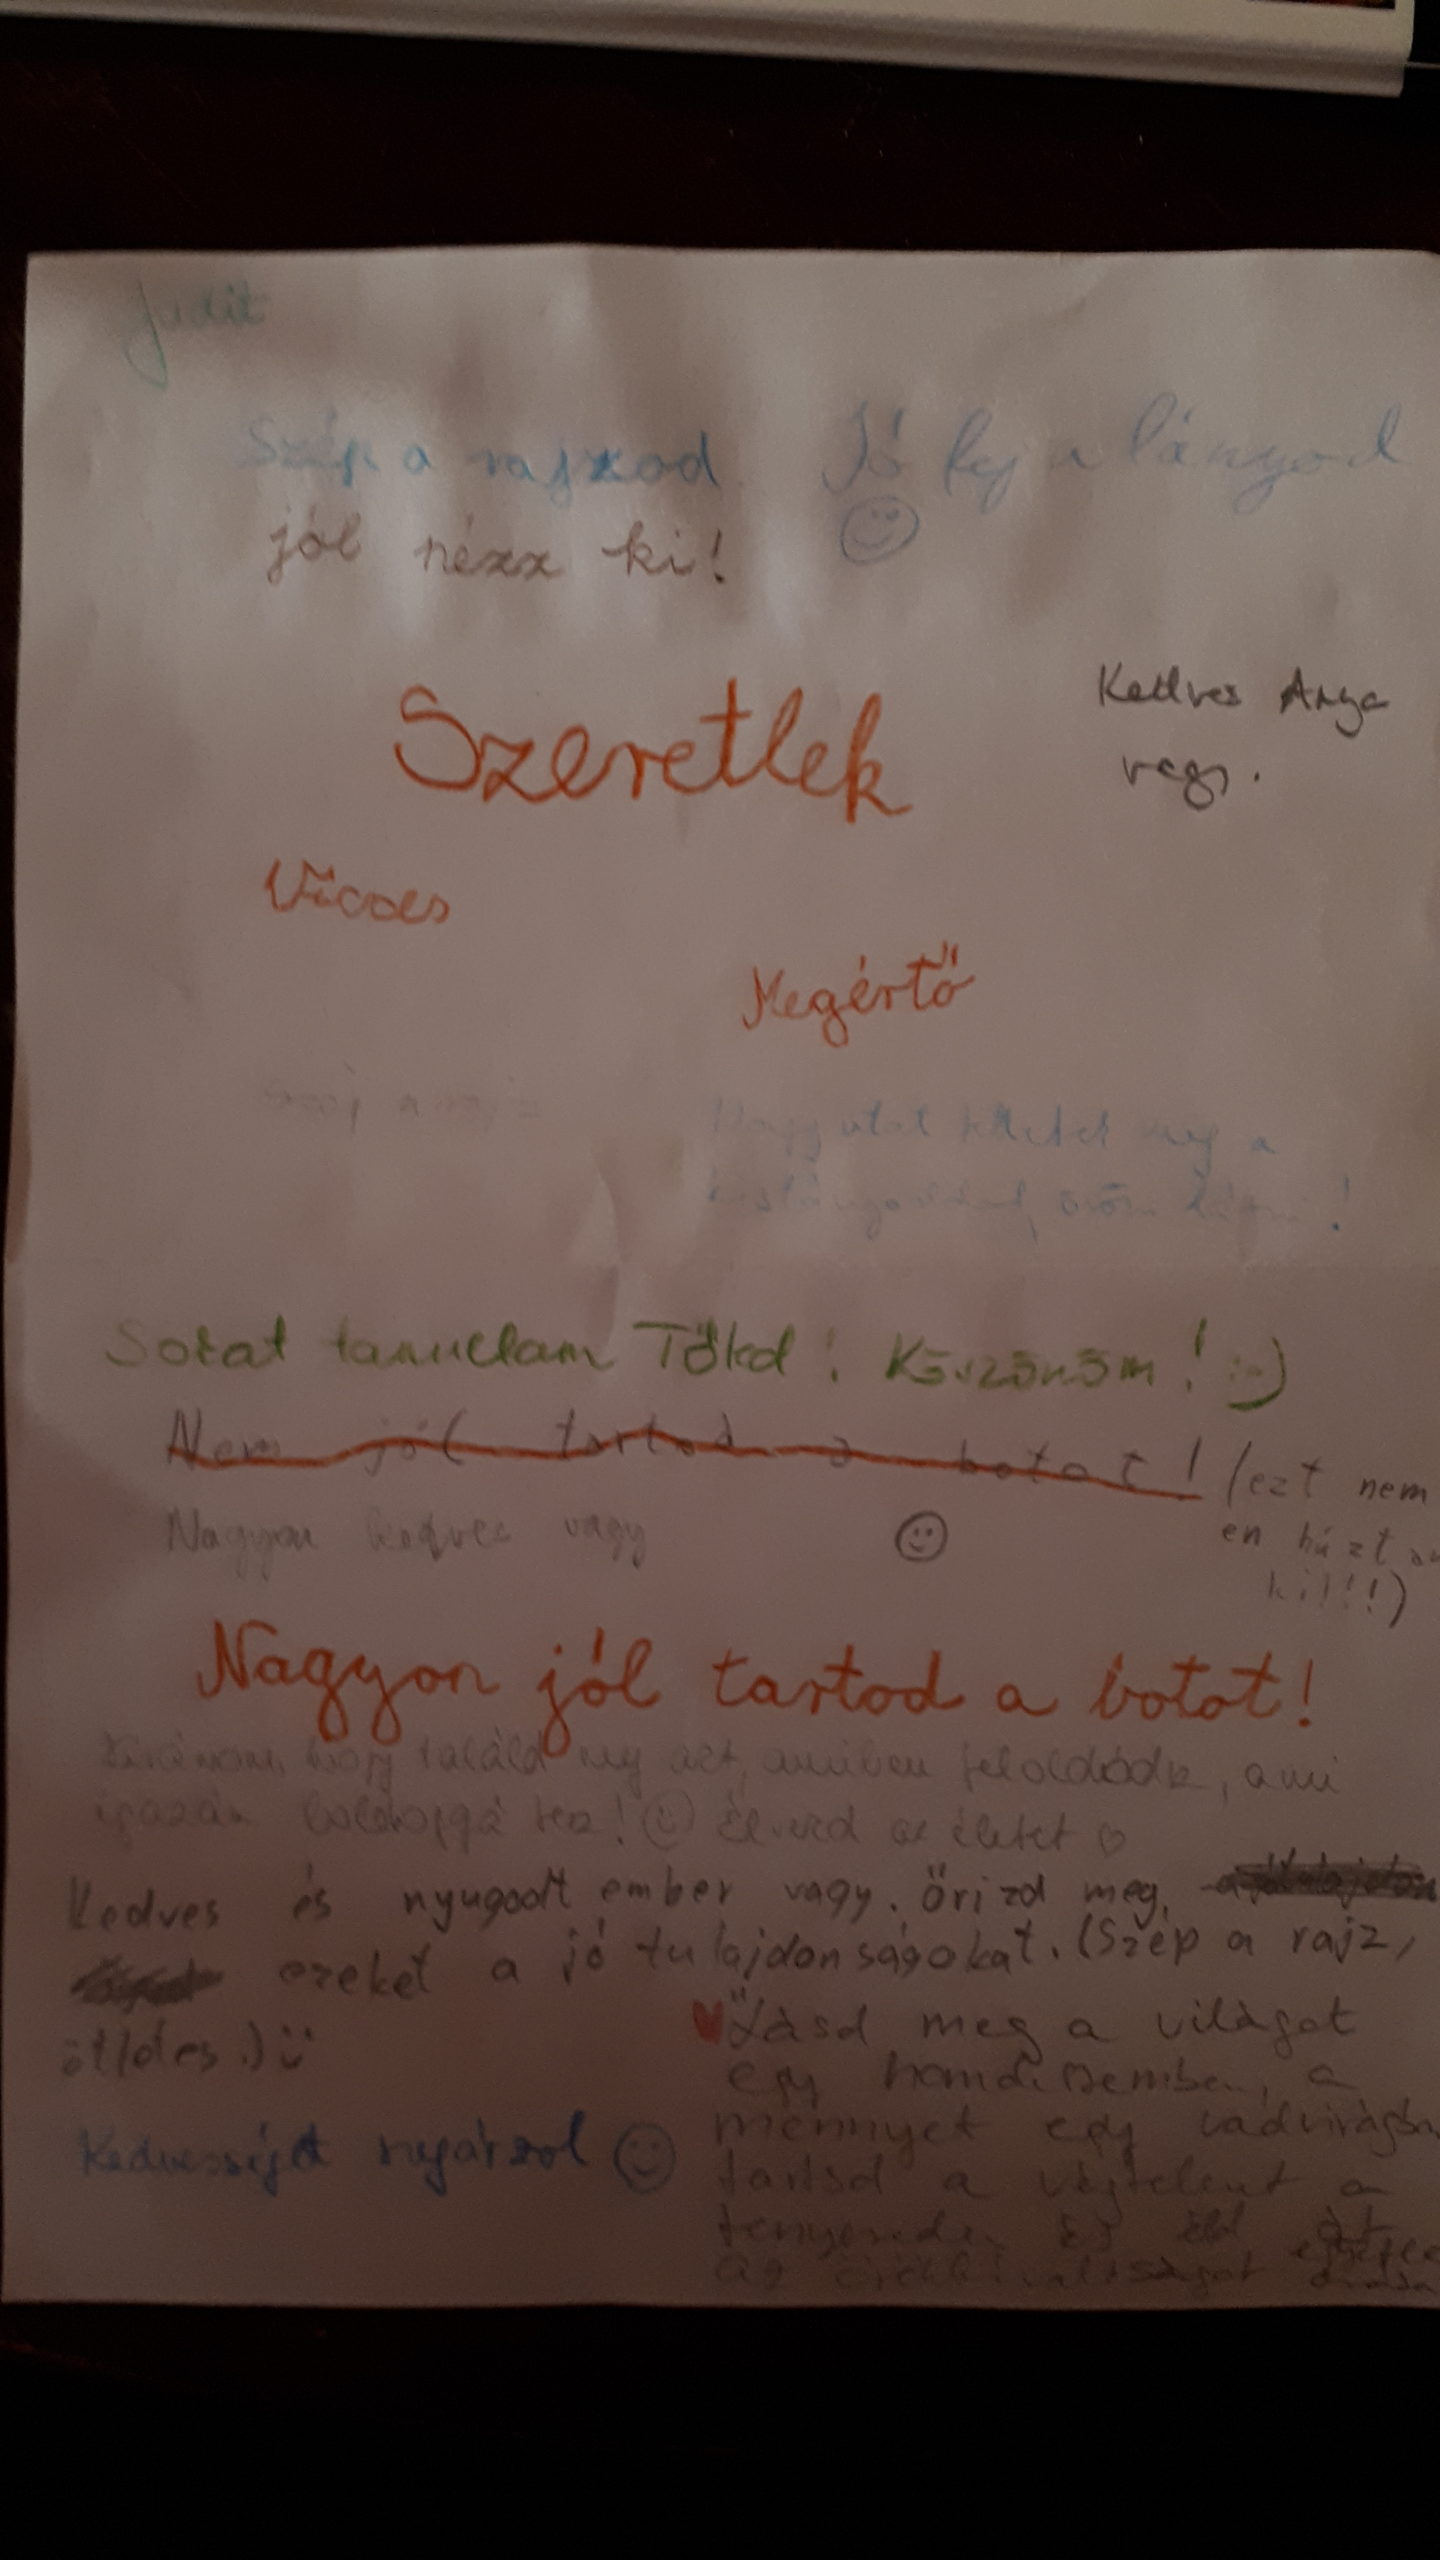 Judit
Szép a rajzod Jó fej a lányod
jól nézz ki!
Szeretlek
Kedves Anya
vagy.
Vicces
Megértő
Nagy utat tettetek meg a
!
Sokat tanultam Tőkd! Köszönöm! :-)
Nem jól tartod a botot! (ezt nem
én húzt
ki!!!)
Nagyon kedves vagy
Nagyon jól tartod a botot!
Kívánom, hogy találd meg azt, amiben feloldódsz, ami
igazán boldoggá tesz! Élvezd az életet ♡
Kedves és nyugodt ember vagy. Őrizd meg,
ezeket a jó tulajdonságokat. (Szép a rajz,
ötletes.)
♥ "Lásd meg a világot
egy homokszemben, a
mennyet egy vadvirágban
tartsd a végtelent a
Kedvességet sugárzol